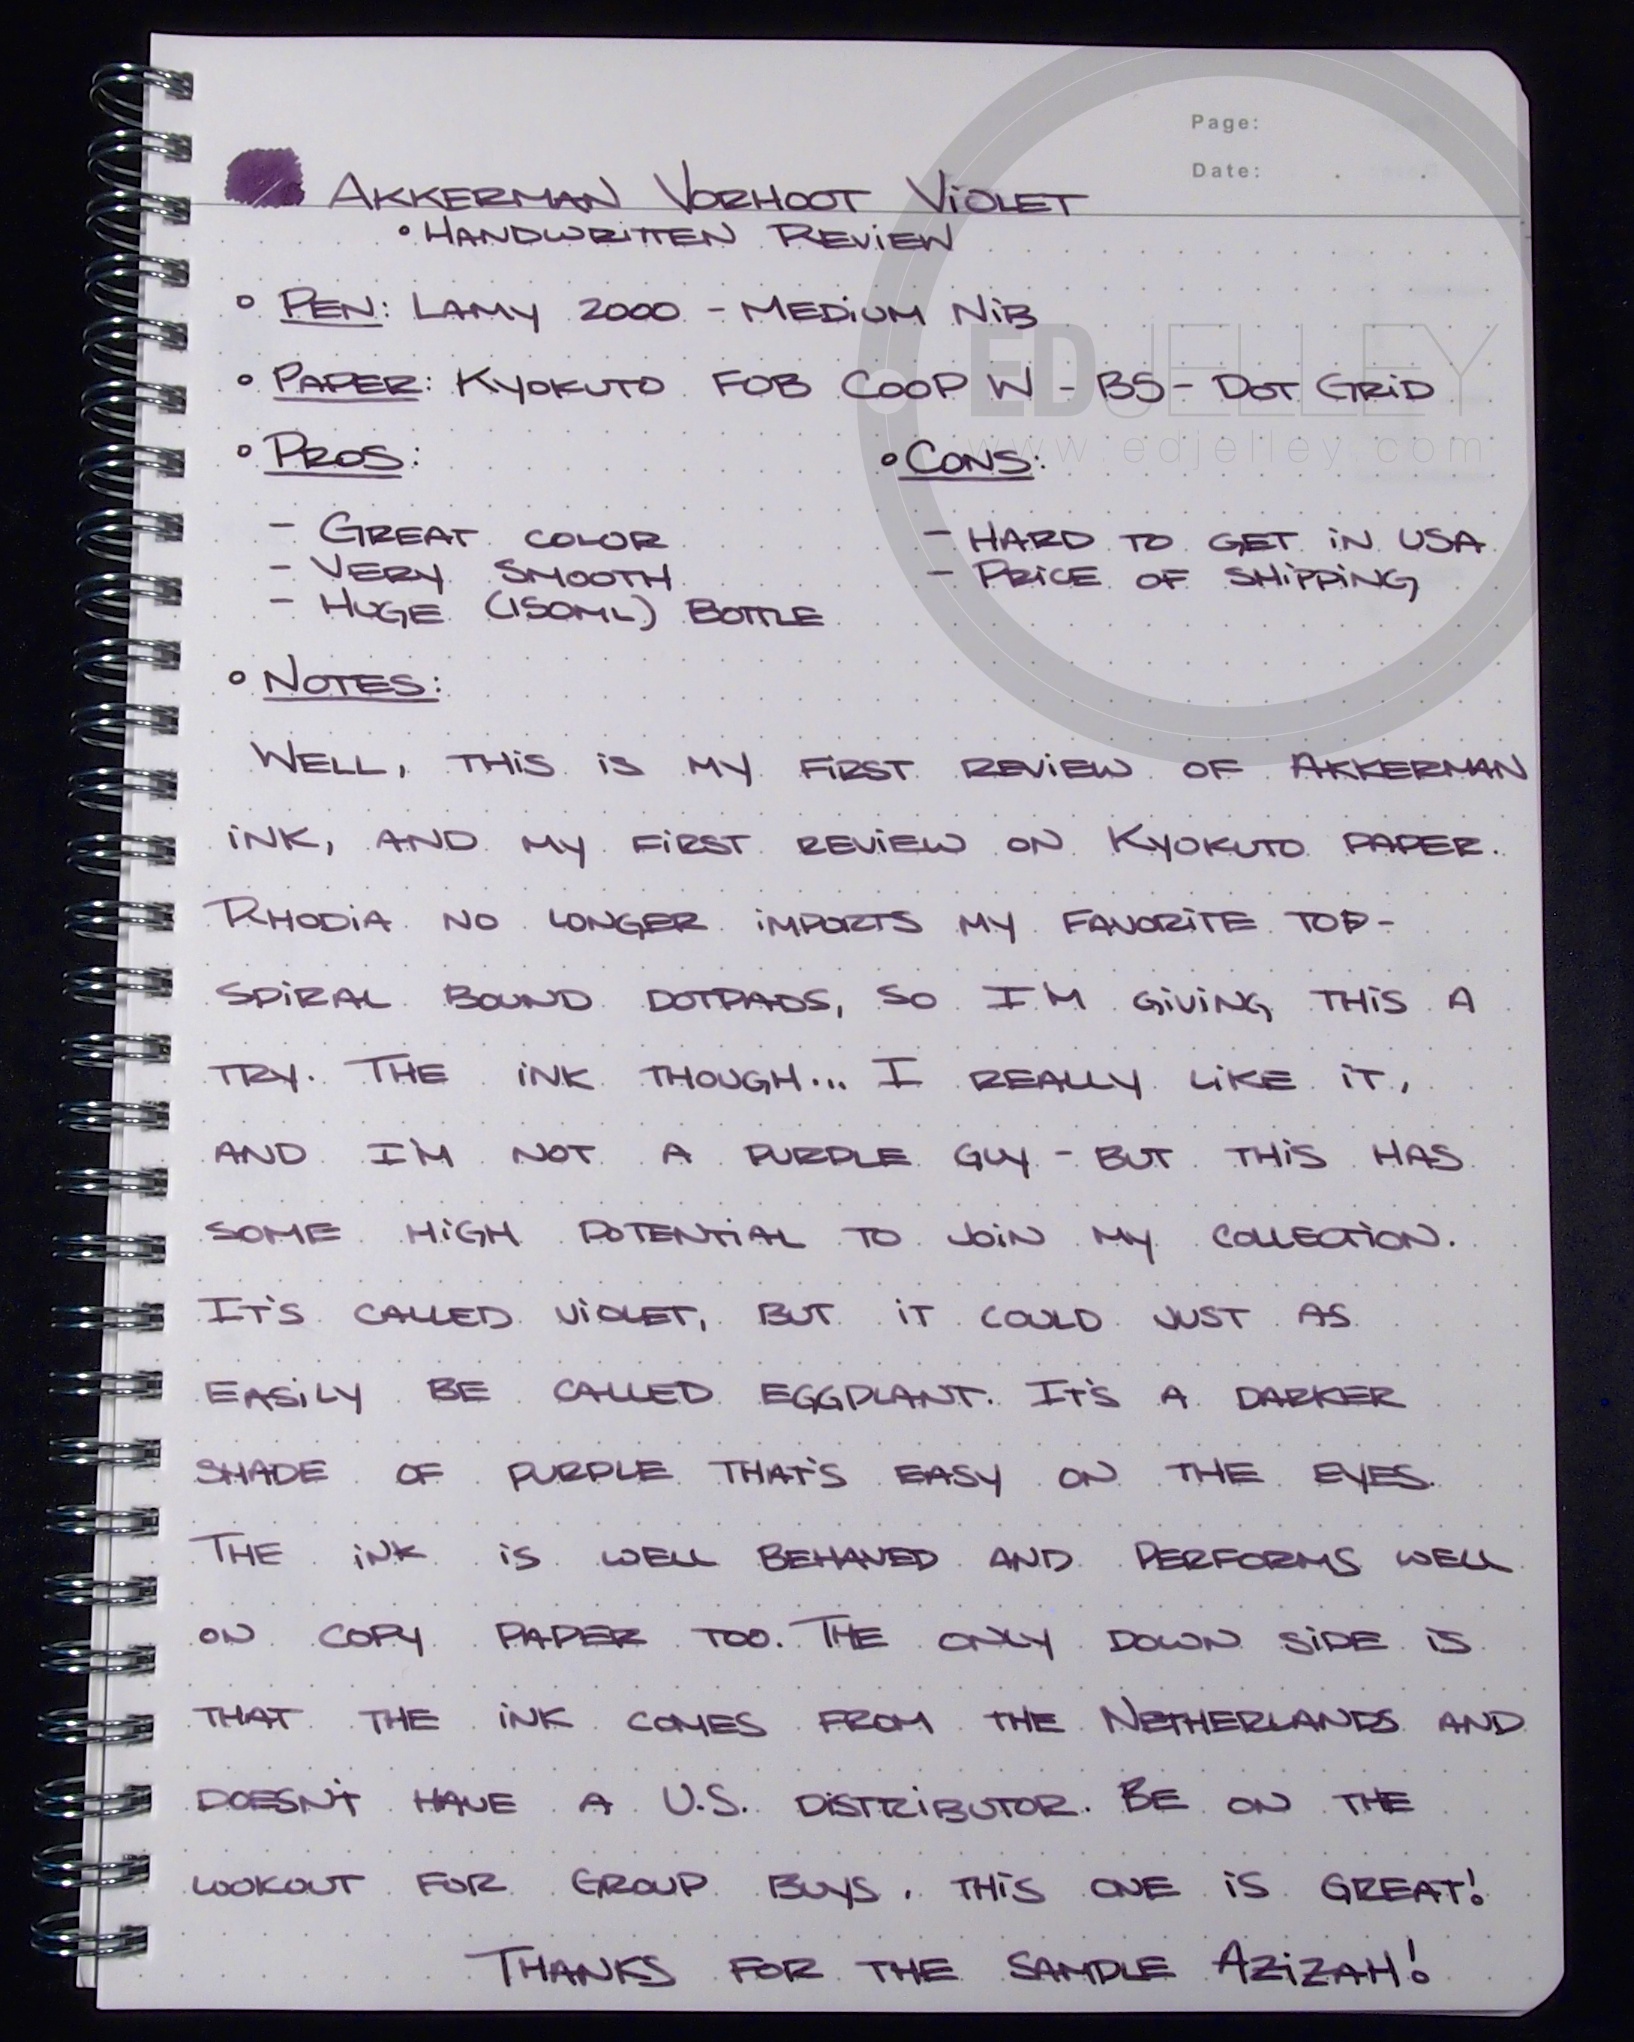 Page:
Date: . .
AKKERMAN VORHOOT VIOLET
• HANDWRITTEN REVIEW
° PEN: LAMY 2000 - MEDIUM NIB
° PAPER: KYOKUTO FOB COOP W - B5 - DOT GRID
EDJELLEY
www.edjelley.com
° PROS: ° CONS:
- GREAT COLOR - HARD TO GET IN USA
- VERY SMOOTH - PRICE OF SHIPPING
- HUGE (150ML) BOTTLE
° NOTES:
WELL, THIS IS MY FIRST REVIEW OF AKKERMAN
INK, AND MY FIRST REVIEW ON KYOKUTO PAPER.
RHODIA NO LONGER IMPORTS MY FAVORITE TOP-
SPIRAL BOUND DOTPADS, SO I'M GIVING THIS A
TRY. THE INK THOUGH... I REALLY LIKE IT,
AND I'M NOT A PURPLE GUY - BUT THIS HAS
SOME HIGH POTENTIAL TO JOIN MY COLLECTION.
IT'S CALLED VIOLET, BUT IT COULD JUST AS
EASILY BE CALLED EGGPLANT. IT'S A DARKER
SHADE OF PURPLE THAT'S EASY ON THE EYES.
THE INK IS WELL BEHAVED AND PERFORMS WELL
ON COPY PAPER TOO. THE ONLY DOWN SIDE IS
THAT THE INK COMES FROM THE NETHERLANDS AND
DOESN'T HAVE A U.S. DISTRIBUTOR. BE ON THE
LOOKOUT FOR GROUP BUYS, THIS ONE IS GREAT!
THANKS FOR THE SAMPLE AZIZAH!